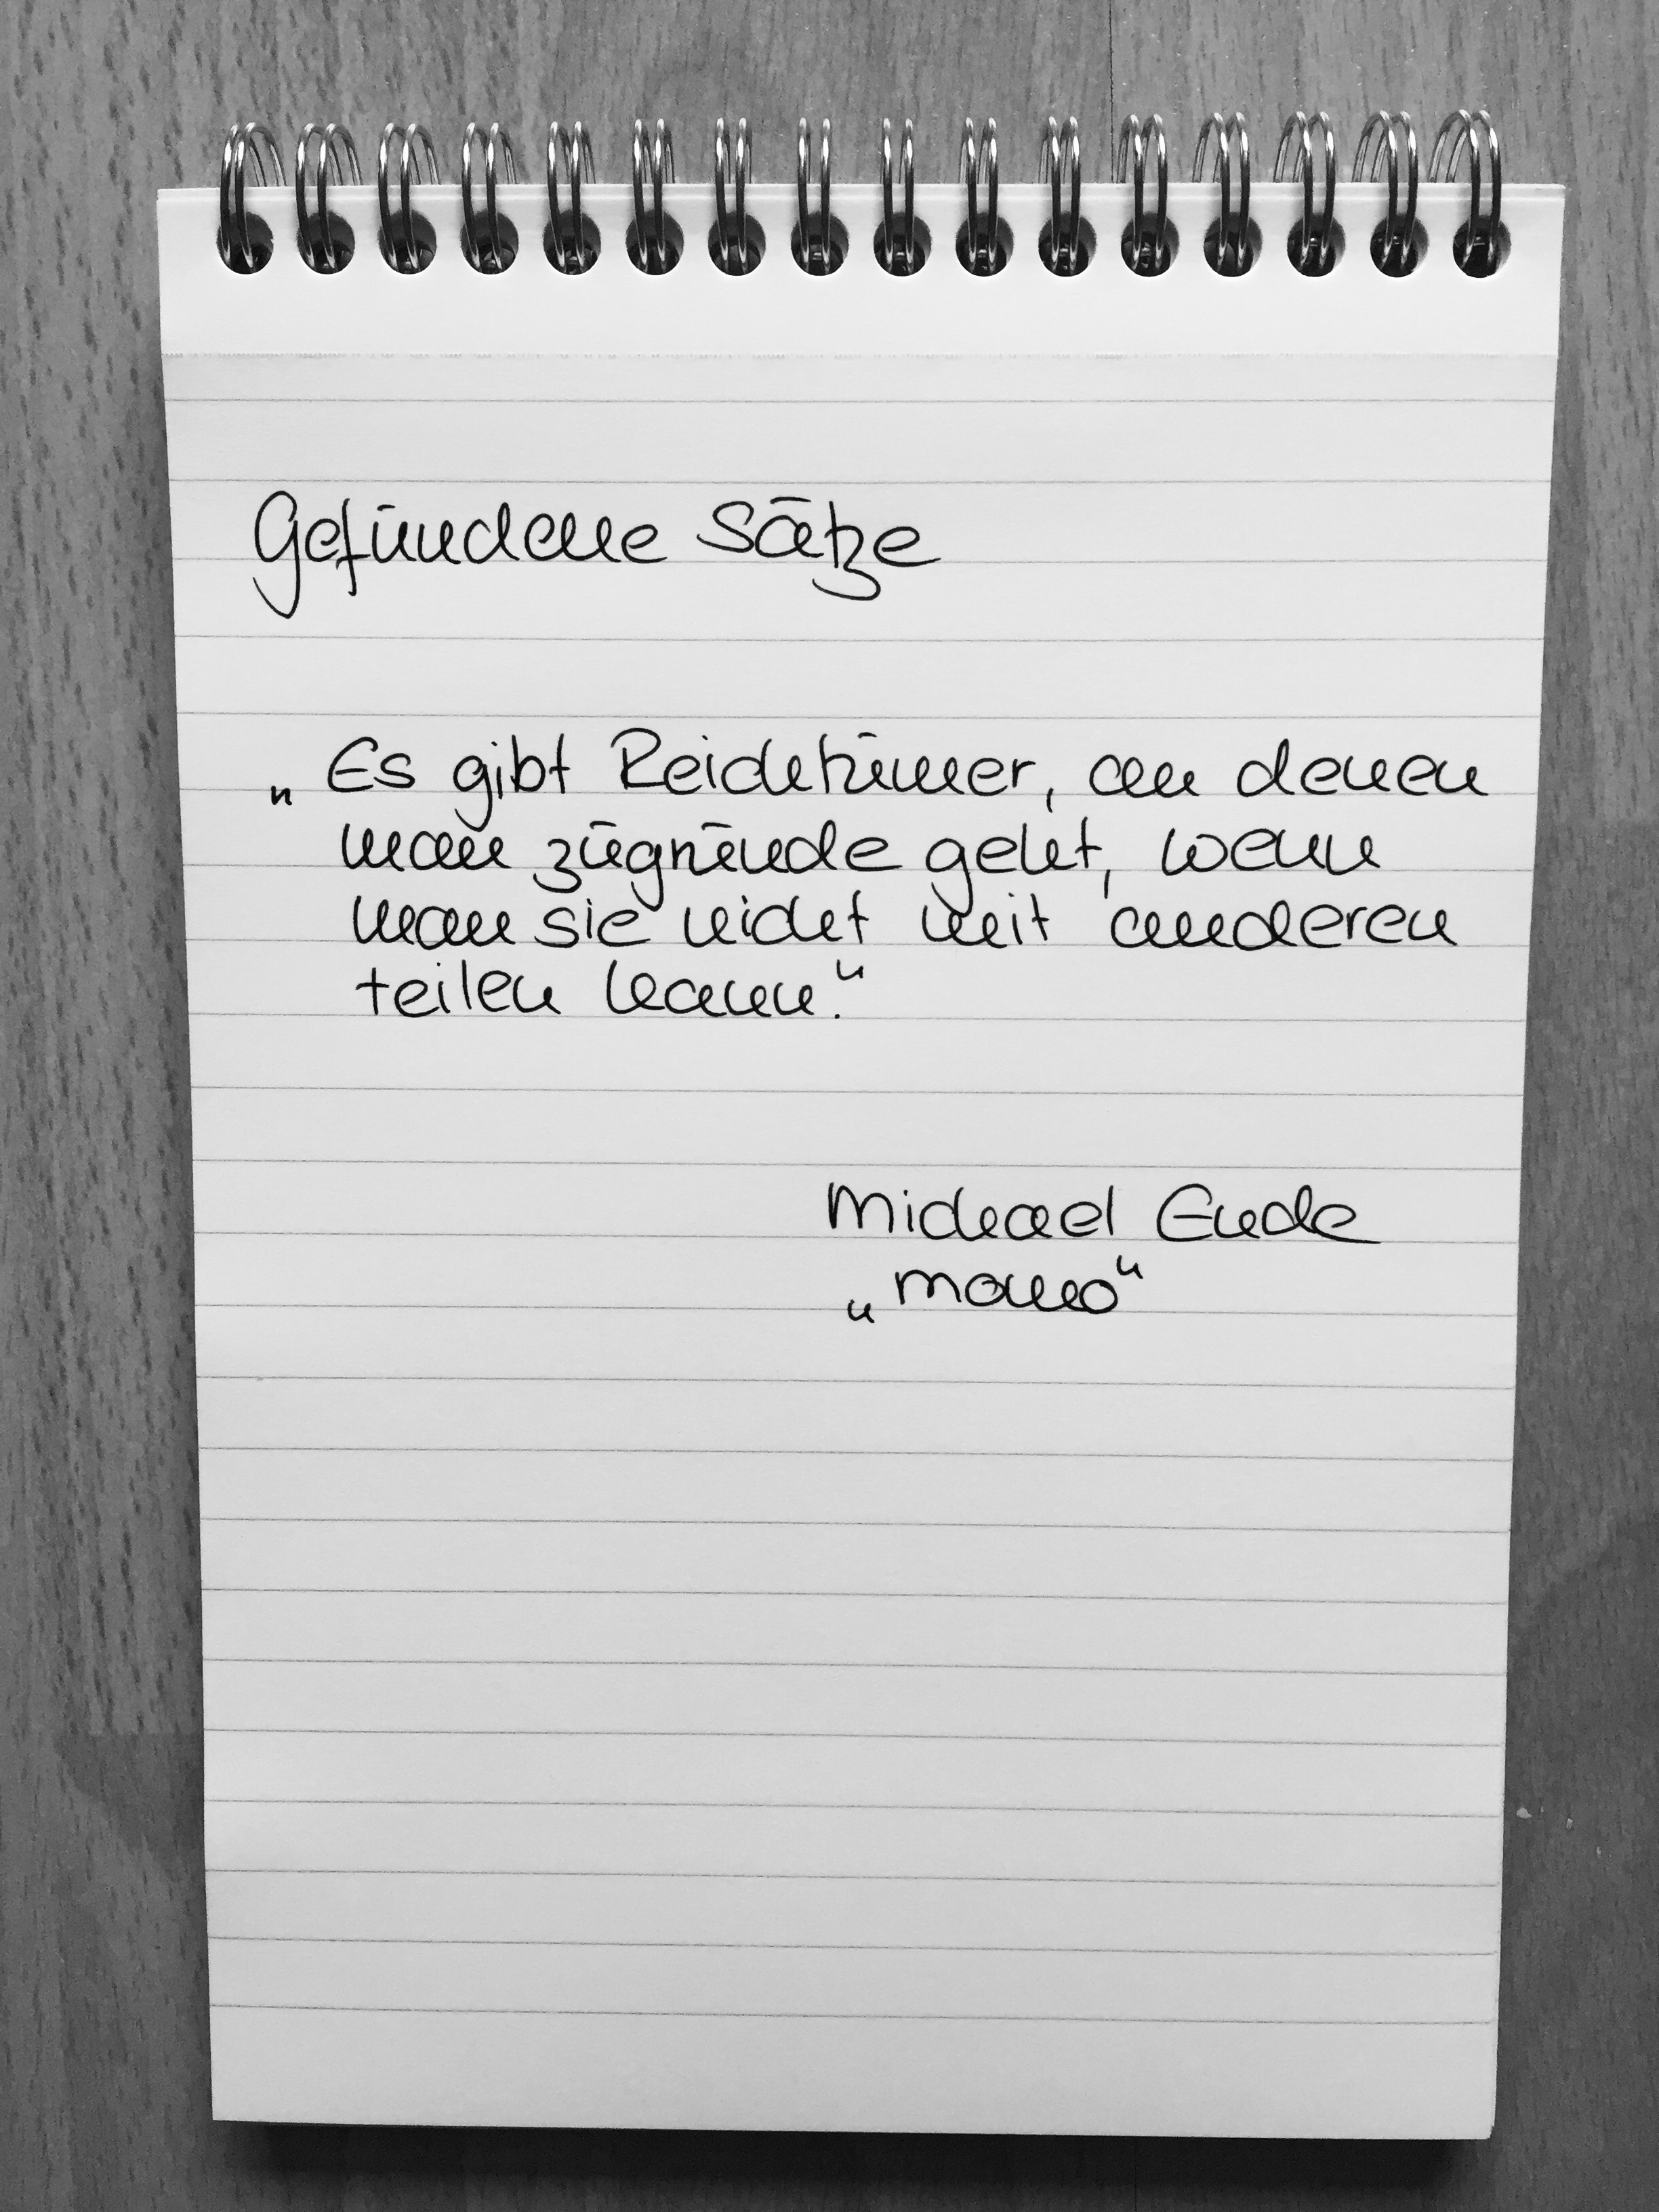 Gefundene Sätze
„Es gibt Reichtümer, an denen
man zugrunde geht, wenn
man sie nicht mit anderen
teilen kann.“
Michael Ende
„Momo“